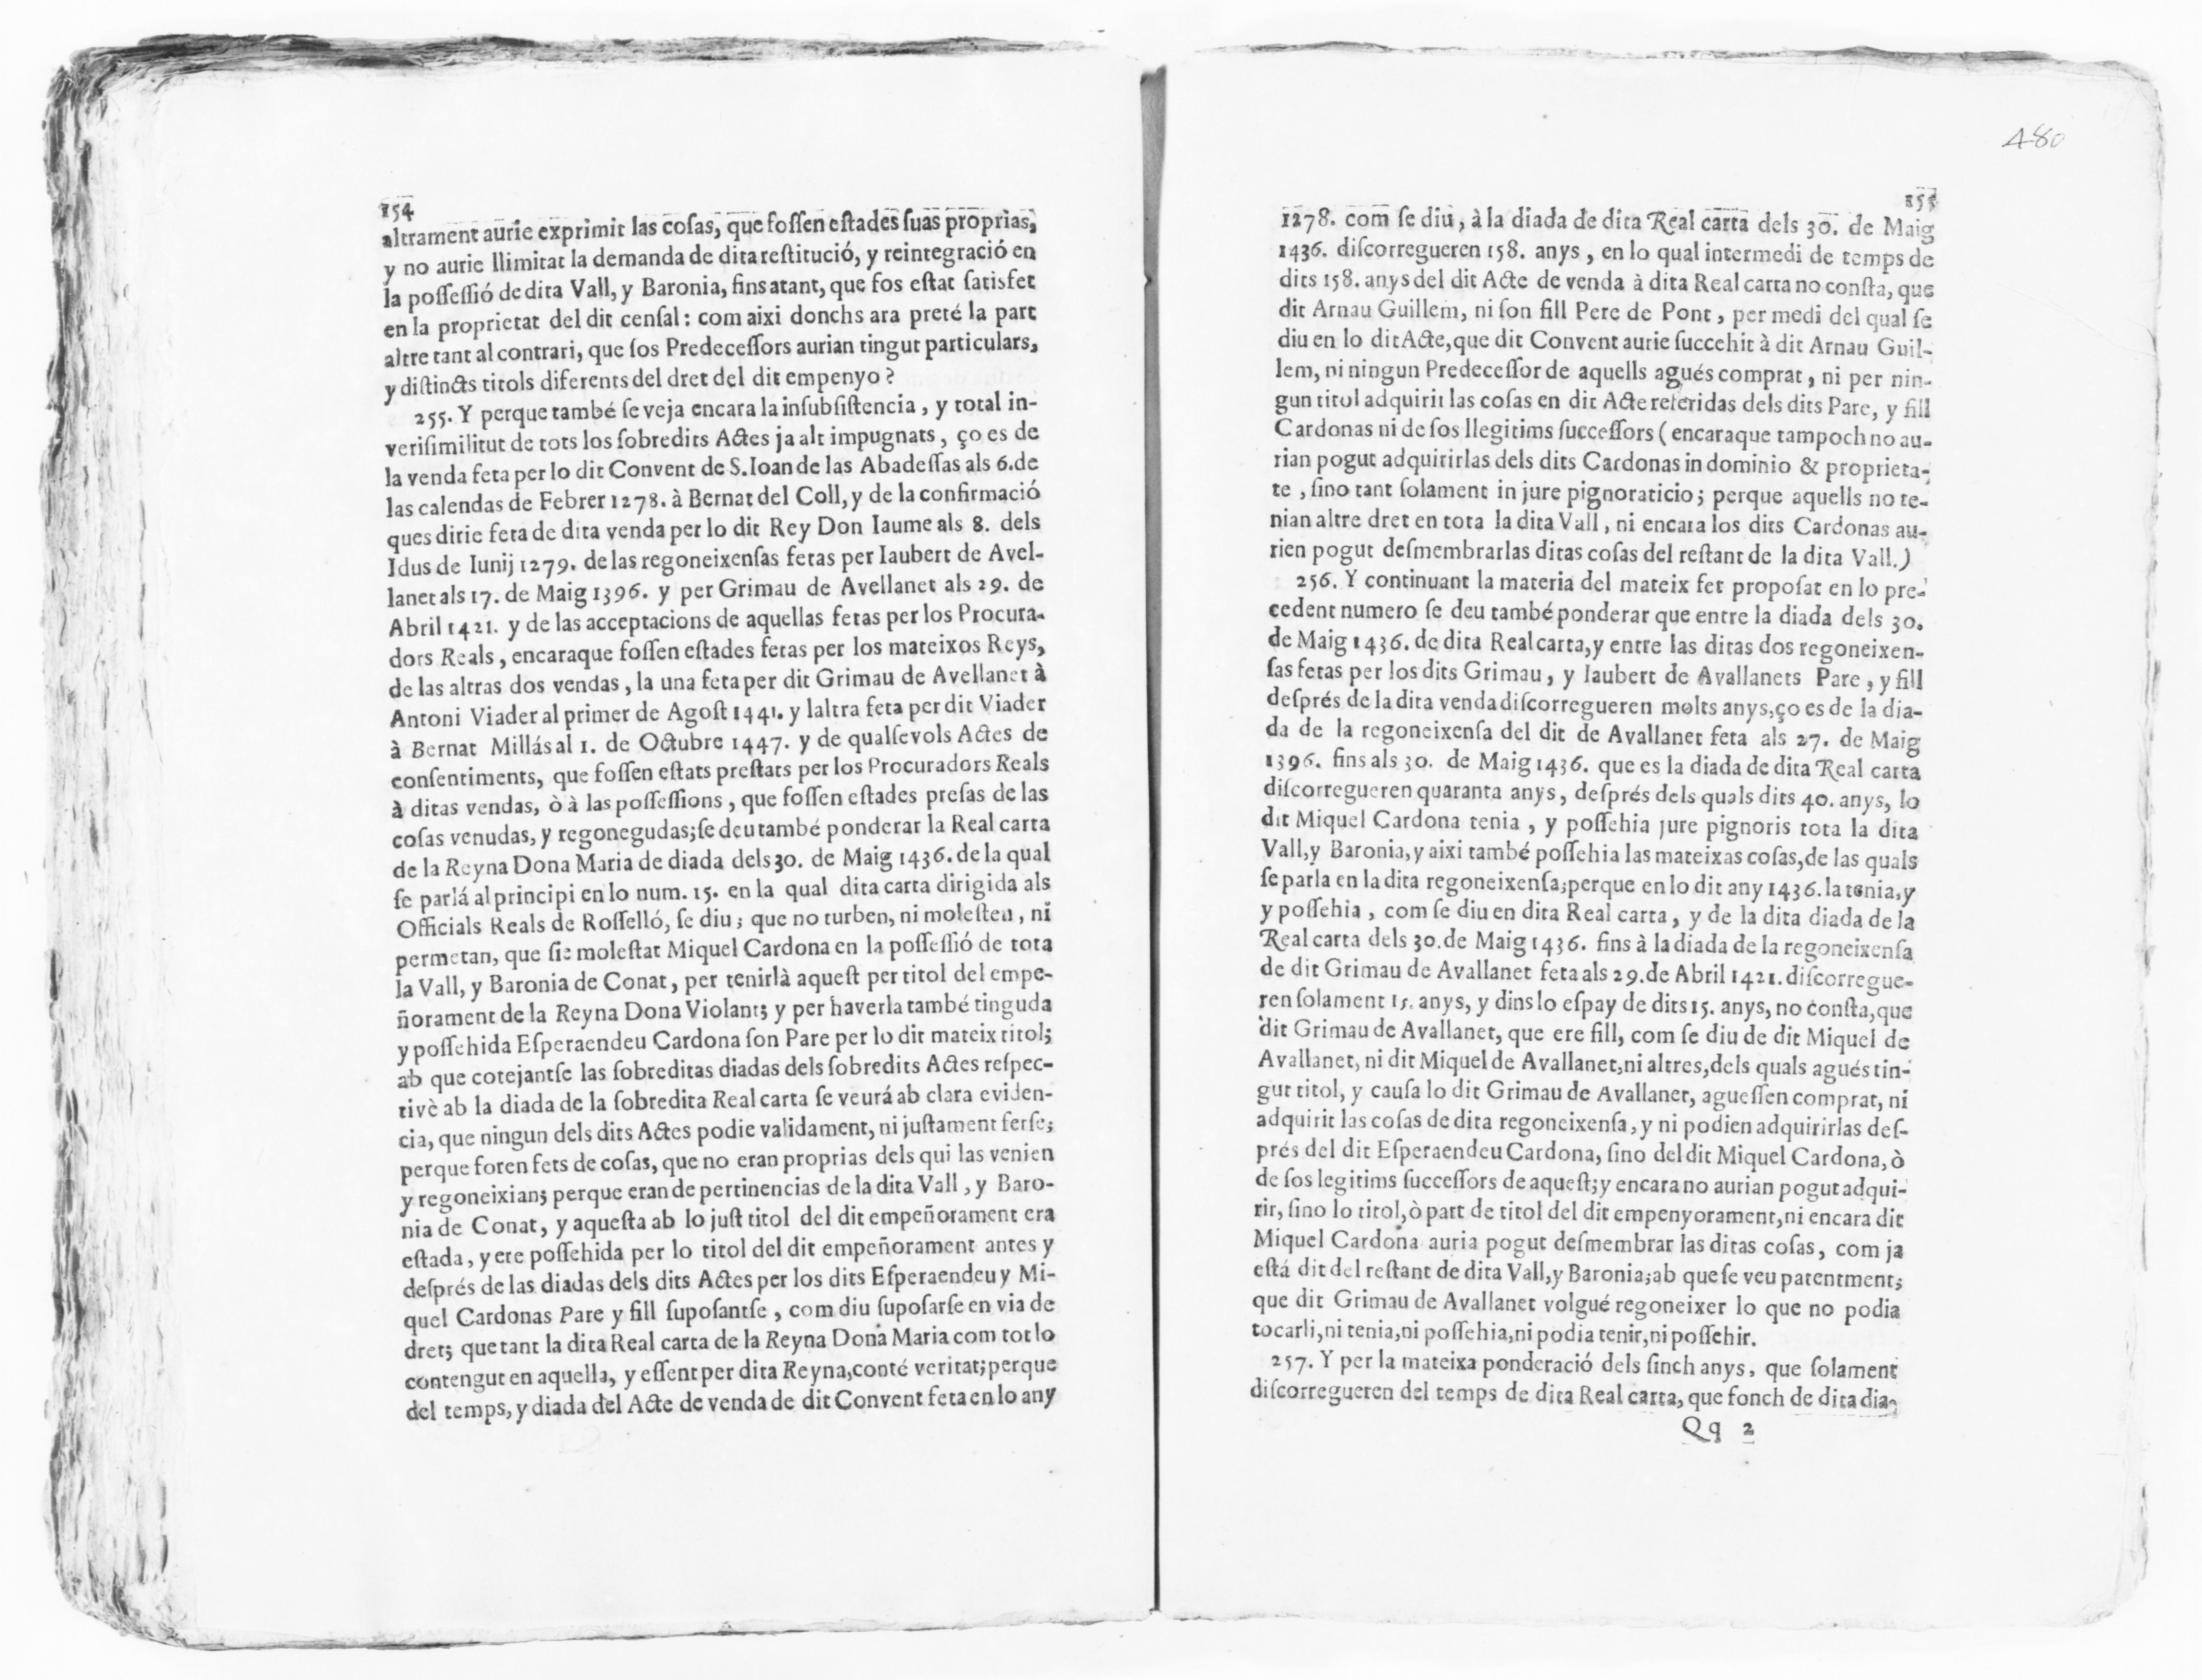 154
altrament aurie exprimit las coſas, que foſſen eſtades ſuas proprias,
y no aurie llimitat la demanda de dita reſtitució, y reintegració en
la poſſeſſió de dita Vall, y Baronia, fins atant, que fos eſtat ſatisfet
en la proprietat del dit cenſal: com aixi donchs ara preté la part
altre tant al contrari, que ſos Predeceſſors aurian tingut particulars,
y diſtincts titols diferents del dret del dit empenyo?
255. Y perque també ſe veja encara la inſubſiſtencia, y total in-
veriſimilitut de tots los ſobredits Actes ja alt impugnats, ço es de
la venda feta per lo dit Convent de S. Ioan de las Abadeſſas als 6. de
las calendas de Febrer 1278. à Bernat del Coll, y de la confirmació
ques dirie feta de dita venda per lo dit Rey Don Iaume als 8. dels
Idus de Iunij 1279. de las regoneixenſas fetas per Iaubert de Avel-
lanet als 17. de Maig 1396. y per Grimau de Avellanet als 29. de
Abril 1421. y de las acceptacions de aquellas fetas per los Procura-
dors Reals, encaraque foſſen eſtades fetas per los mateixos Reys,
de las altras dos vendas, la una feta per dit Grimau de Avellanet à
Antoni Viader al primer de Agoſt 1441. y laltra feta per dit Viader
à Bernat Millás al 1. de Octubre 1447. y de qualſevols Actes de
conſentiments, que foſſen eſtats preſtats per los Procuradors Reals
à ditas vendas, ò à las poſſeſſions, que foſſen eſtades preſas de las
coſas venudas, y regonegudas; ſe deu també ponderar la Real carta
de la Reyna Dona Maria de diada dels 30. de Maig 1436. de la qual
ſe parlá al principi en lo num. 15. en la qual dita carta dirigida als
Officials Reals de Roſſelló, ſe diu; que no turben, ni moleſten, ni
permetan, que ſie moleſtat Miquel Cardona en la poſſeſſió de tota
la Vall, y Baronia de Conat, per tenirlà aqueſt per titol del empe-
ñorament de la Reyna Dona Violant; y per haverla també tinguda
y poſſehida Eſperaendeu Cardona ſon Pare per lo dit mateix titol;
ab que cotejantſe las ſobreditas diadas dels ſobredits Actes reſpec-
tivè ab la diada de la ſobredita Real carta ſe veurá ab clara eviden-
cia, que ningun dels dits Actes podie validament, ni juſtament ferſe;
perque foren fets de coſas, que no eran proprias dels qui las venien
y regoneixian; perque eran de pertinencias de la dita Vall, y Baro-
nia de Conat, y aqueſta ab lo juſt titol del dit empeñorament era
eſtada, y ere poſſehida per lo titol del dit empeñorament antes y
deſprés de las diadas dels dits Actes per los dits Eſperaendeu y Mi-
quel Cardonas Pare y fill ſupoſantſe, com diu ſupoſarſe en via de
dret; que tant la dita Real carta de la Reyna Dona Maria com tot lo
contengut en aquella, y eſſent per dita Reyna, conté veritat; perque
del temps, y diada del Acte de venda de dit Convent feta en lo any
480
155
1278. com ſe diu, à la diada de dita Real carta dels 30. de Maig
1436. diſcorregueren 158. anys, en lo qual intermedi de temps de
dits 158. anys del dit Acte de venda à dita Real carta no conſta, que
dit Arnau Guillem, ni ſon fill Pere de Pont, per medi del qual ſe
diu en lo dit Acte, que dit Convent aurie ſuccehit à dit Arnau Guil-
lem, ni ningun Predeceſſor de aquells agués comprat, ni per nin-
gun titol adquirit las coſas en dit Acte referidas dels dits Pare, y fill
Cardonas ni de ſos llegitims ſucceſſors (encaraque tampoch no au-
rian pogut adquirirlas dels dits Cardonas in dominio & proprieta-
te, ſino tant ſolament in jure pignoraticio; perque aquells no te-
nian altre dret en tota la dita Vall, ni encara los dits Cardonas au-
rien pogut deſmembrarlas ditas coſas del reſtant de la dita Vall.)
256. Y continuant la materia del mateix fet propoſat en lo pre-
cedent numero ſe deu també ponderar que entre la diada dels 30.
de Maig 1436. de dita Real carta, y entre las ditas dos regoneixen-
ſas fetas per los dits Grimau, y Iaubert de Avallanets Pare, y fill
deſprés de la dita venda diſcorregueren molts anys, ço es de la dia-
da de la regoneixenſa del dit de Avallanet feta als 27. de Maig
1396. fins als 30. de Maig 1436. que es la diada de dita Real carta
diſcorregueren quaranta anys, deſprés dels quals dits 40. anys, lo
dit Miquel Cardona tenia, y poſſehia jure pignoris tota la dita
Vall, y Baronia, y aixi també poſſehia las mateixas coſas, de las quals
ſe parla en la dita regoneixenſa; perque en lo dit any 1436. la tenia, y
y poſſehia, com ſe diu en dita Real carta, y de la dita diada de la
Real carta dels 30. de Maig 1436. fins à la diada de la regoneixenſa
de dit Grimau de Avallanet feta als 29. de Abril 1421. diſcorregue-
ren ſolament 15. anys, y dins lo eſpay de dits 15. anys, no conſta, que
dit Grimau de Avallanet, que ere fill, com ſe diu de dit Miquel de
Avallanet, ni dit Miquel de Avallanet, ni altres, dels quals agués tin-
gut titol, y cauſa lo dit Grimau de Avallanet, agueſſen comprat, ni
adquirit las coſas de dita regoneixenſa, y ni podien adquirirlas deſ-
prés del dit Eſperaendeu Cardona, ſino del dit Miquel Cardona, ò
de ſos legitims ſucceſſors de aqueſt; y encara no aurian pogut adqui-
rir, ſino lo titol, ò part de titol del dit empenyorament, ni encara dit
Miquel Cardona auria pogut deſmembrar las ditas coſas, com ja
eſtá dit del reſtant de dita Vall, y Baronia; ab que ſe veu patentment;
que dit Grimau de Avallanet volgué regoneixer lo que no podia
tocarli, ni tenia, ni poſſehia, ni podia tenir, ni poſſehir.
257. Y per la mateixa ponderació dels ſinch anys, que ſolament
diſcorregueren del temps de dita Real carta, que fonch de dita dia-
Qq 2